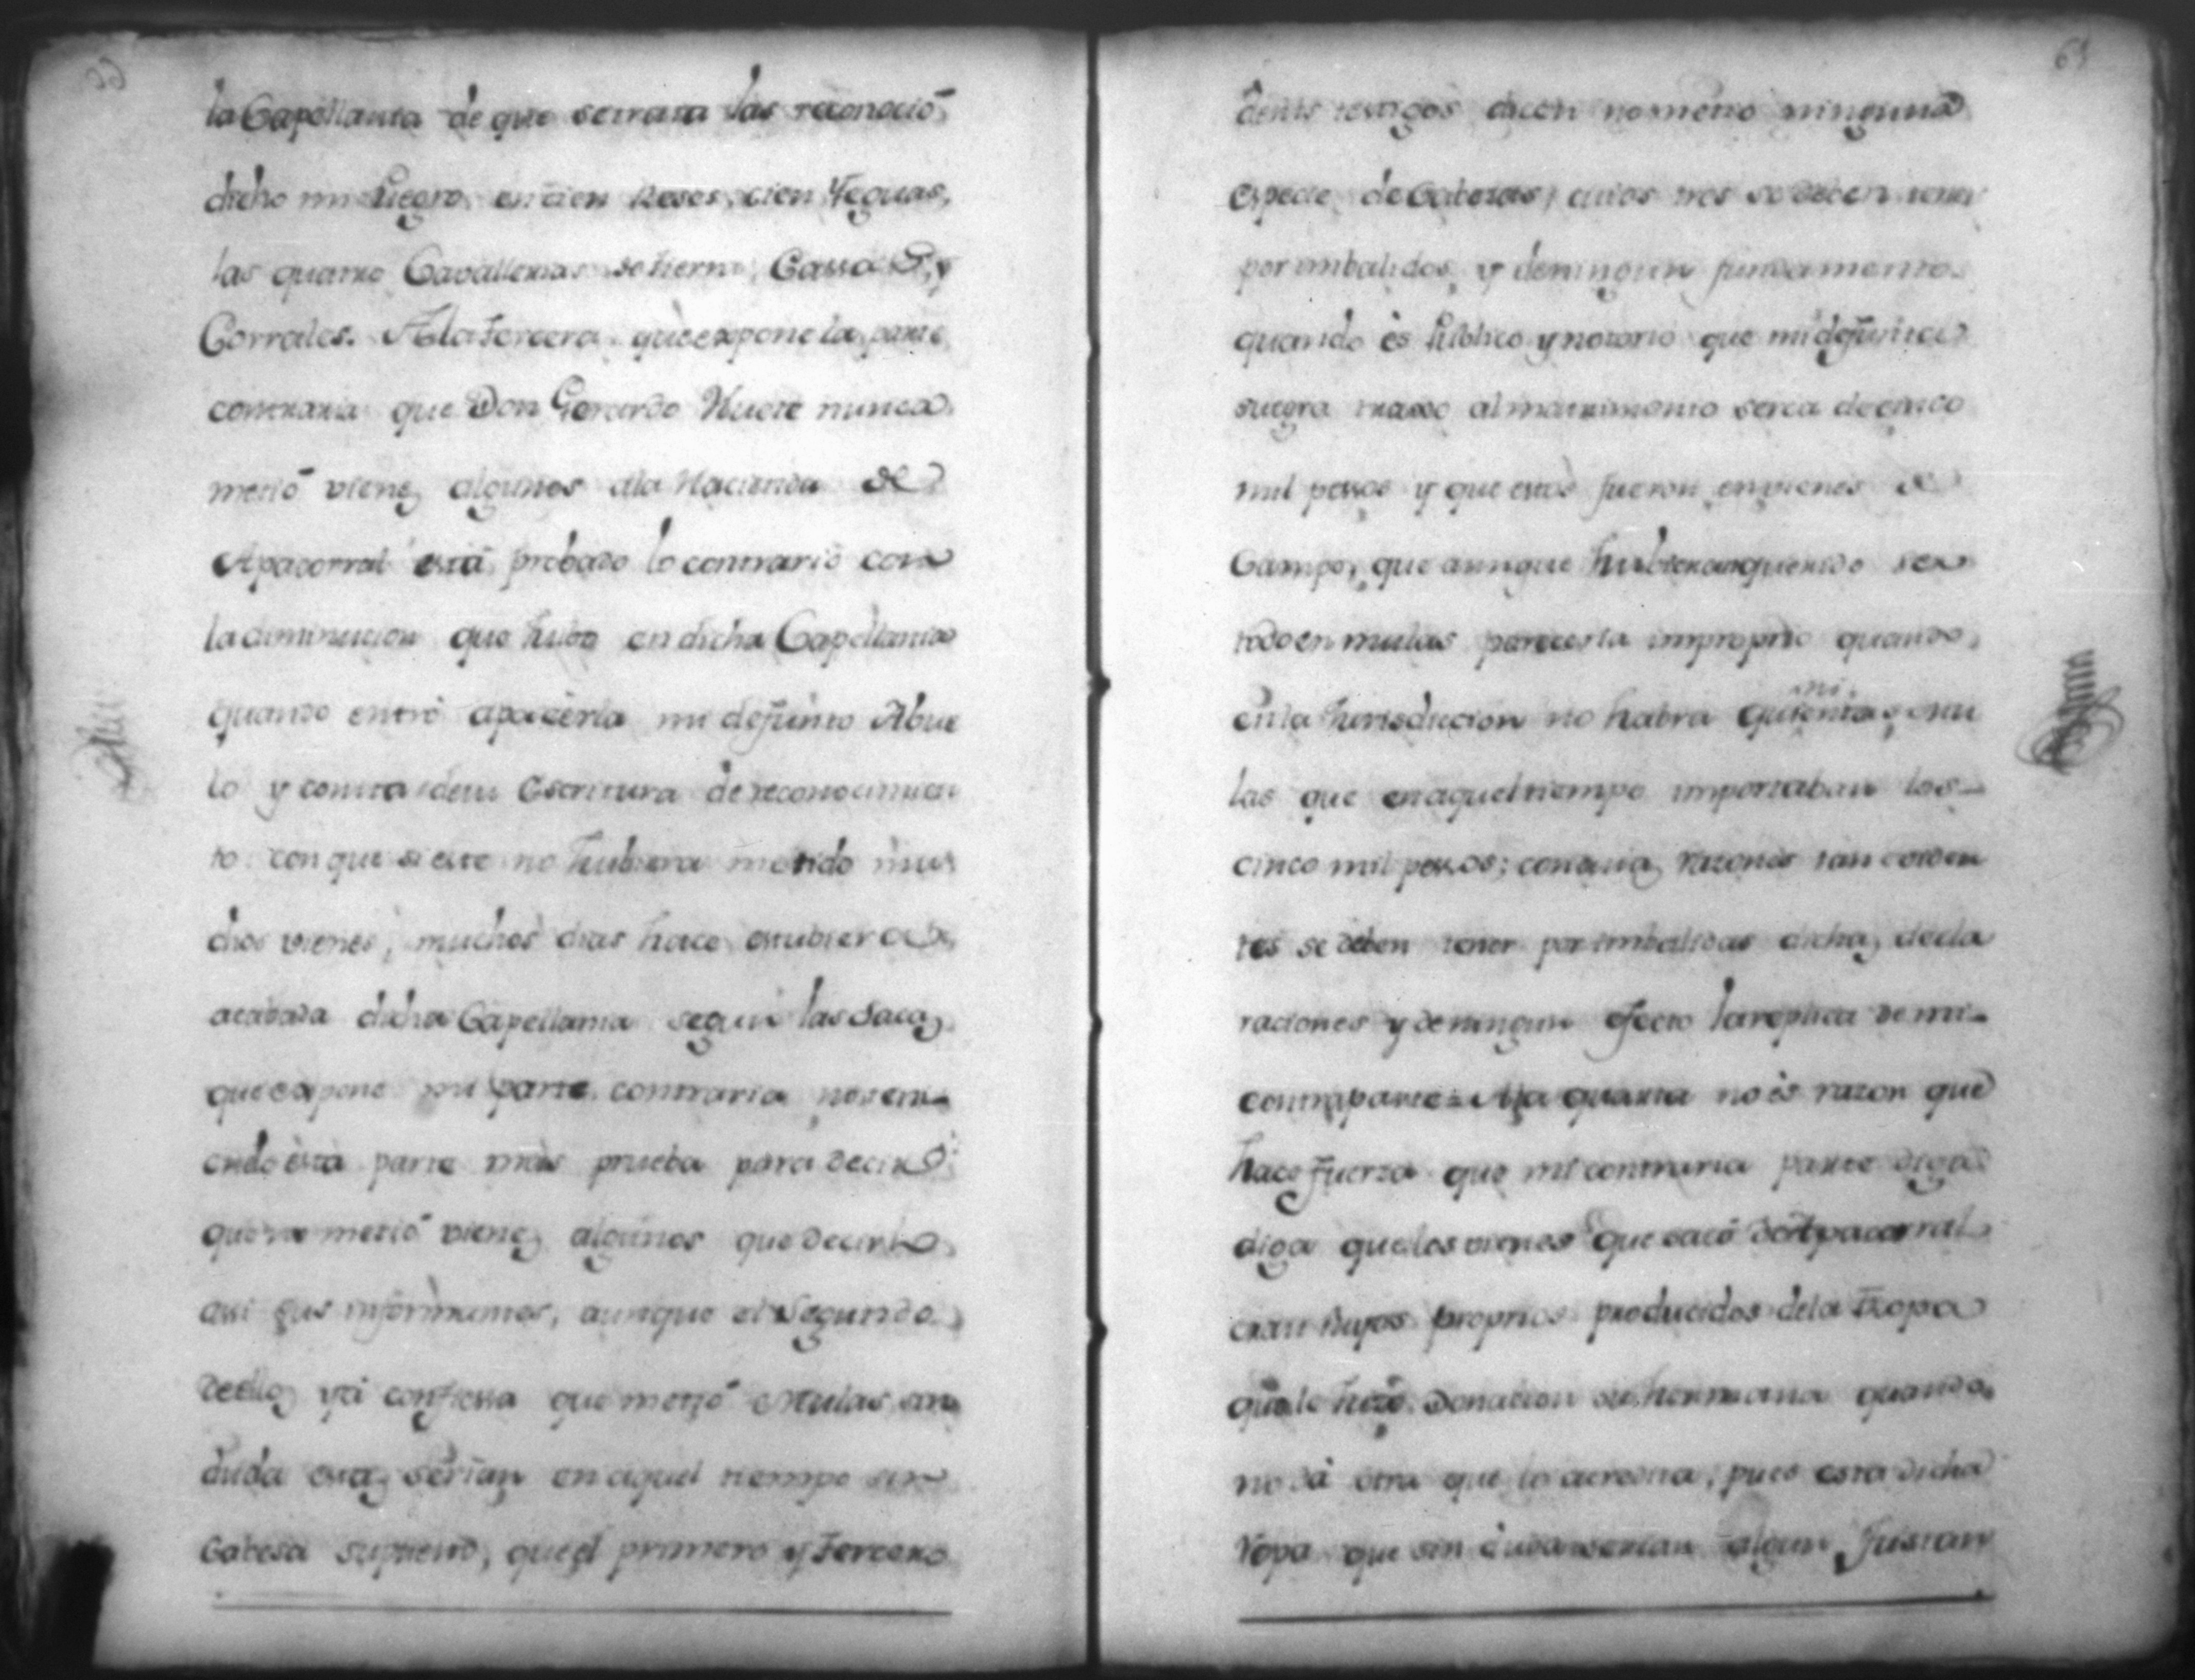 la Capellania de que se trata las reconoció
dicho mi Suegro en cien Reses, cien Yeguas,
las quatro Cavallerias de tierra, Cassa, y
Corrales. Ala tercera que expone la parte
contraria que Don Gerardo nunca
metió vienes algunos ala Hacienda de
Apacorral está probado lo contrario con
la diminucion que hubo en dicha Capellania
quando entró aposeerla mi defunto Abue
lo y consta desu Escritura de reconocimien
to con que si este no hubiera metido mu
chos vienes, muchos dias hace estubiera
acabada dicha Capellania segun las sacas
que expone mi parte contraria no teni-
endo esta parte más prueba para decir
que no metió vienes algunos que decirlo
assi sus informantes, aunque el Segundo
deellos ya confiessa que metió Mulas sin
duda estas serian en aquel tiempo sin
Cabesa supuesto, que el primero y tercero
69
testigos dicen no metió ninguna
especie de Caberas, cuios tres se deben tener
por imbalidos y deningun fundamento
quando és Publico y notorio que mi defunta
suegra traxo al matrimonio serca de cinco
mil pessos y que estos fueron en vienes de
Campo, que aunque hubieran querido ser
todo en mulas pareceria improprio quando
en la Jurisdicion no habra quinientas mu
las que en aquel tiempo importaban los
cinco mil pessos; con cuias razones tan
tes se deben tener por imbalidas dichas decla
raciones y deningun efecto la replica de mi
contraparte = Ala quarta no és razon que
hace fuerza que mi contraria parte diga
diga que los vienes que sacó de Apacorral
eran suyos proprios producidos dela Ropa
que le hizo Donacion su hermana quando
no dá otra que lo acredita, pues esta dicha
Ropa que sin duda serian algun Fustan